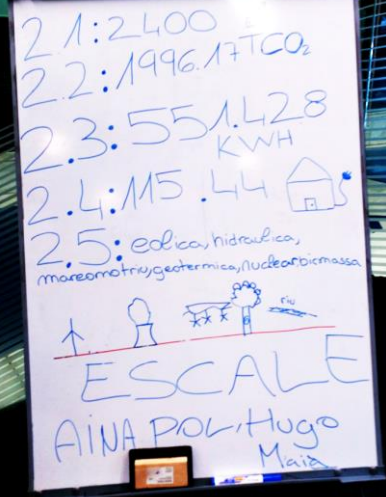 2.1:2400
2.2:1996.17TCO2
2.3:551.428
KWH
2.4:115.44
2.5: eolica, hidraulica,
mareomotriu, geotermica, nuclear, biomassa
riu
ESCALE
AINA POL, Hugo
Maia